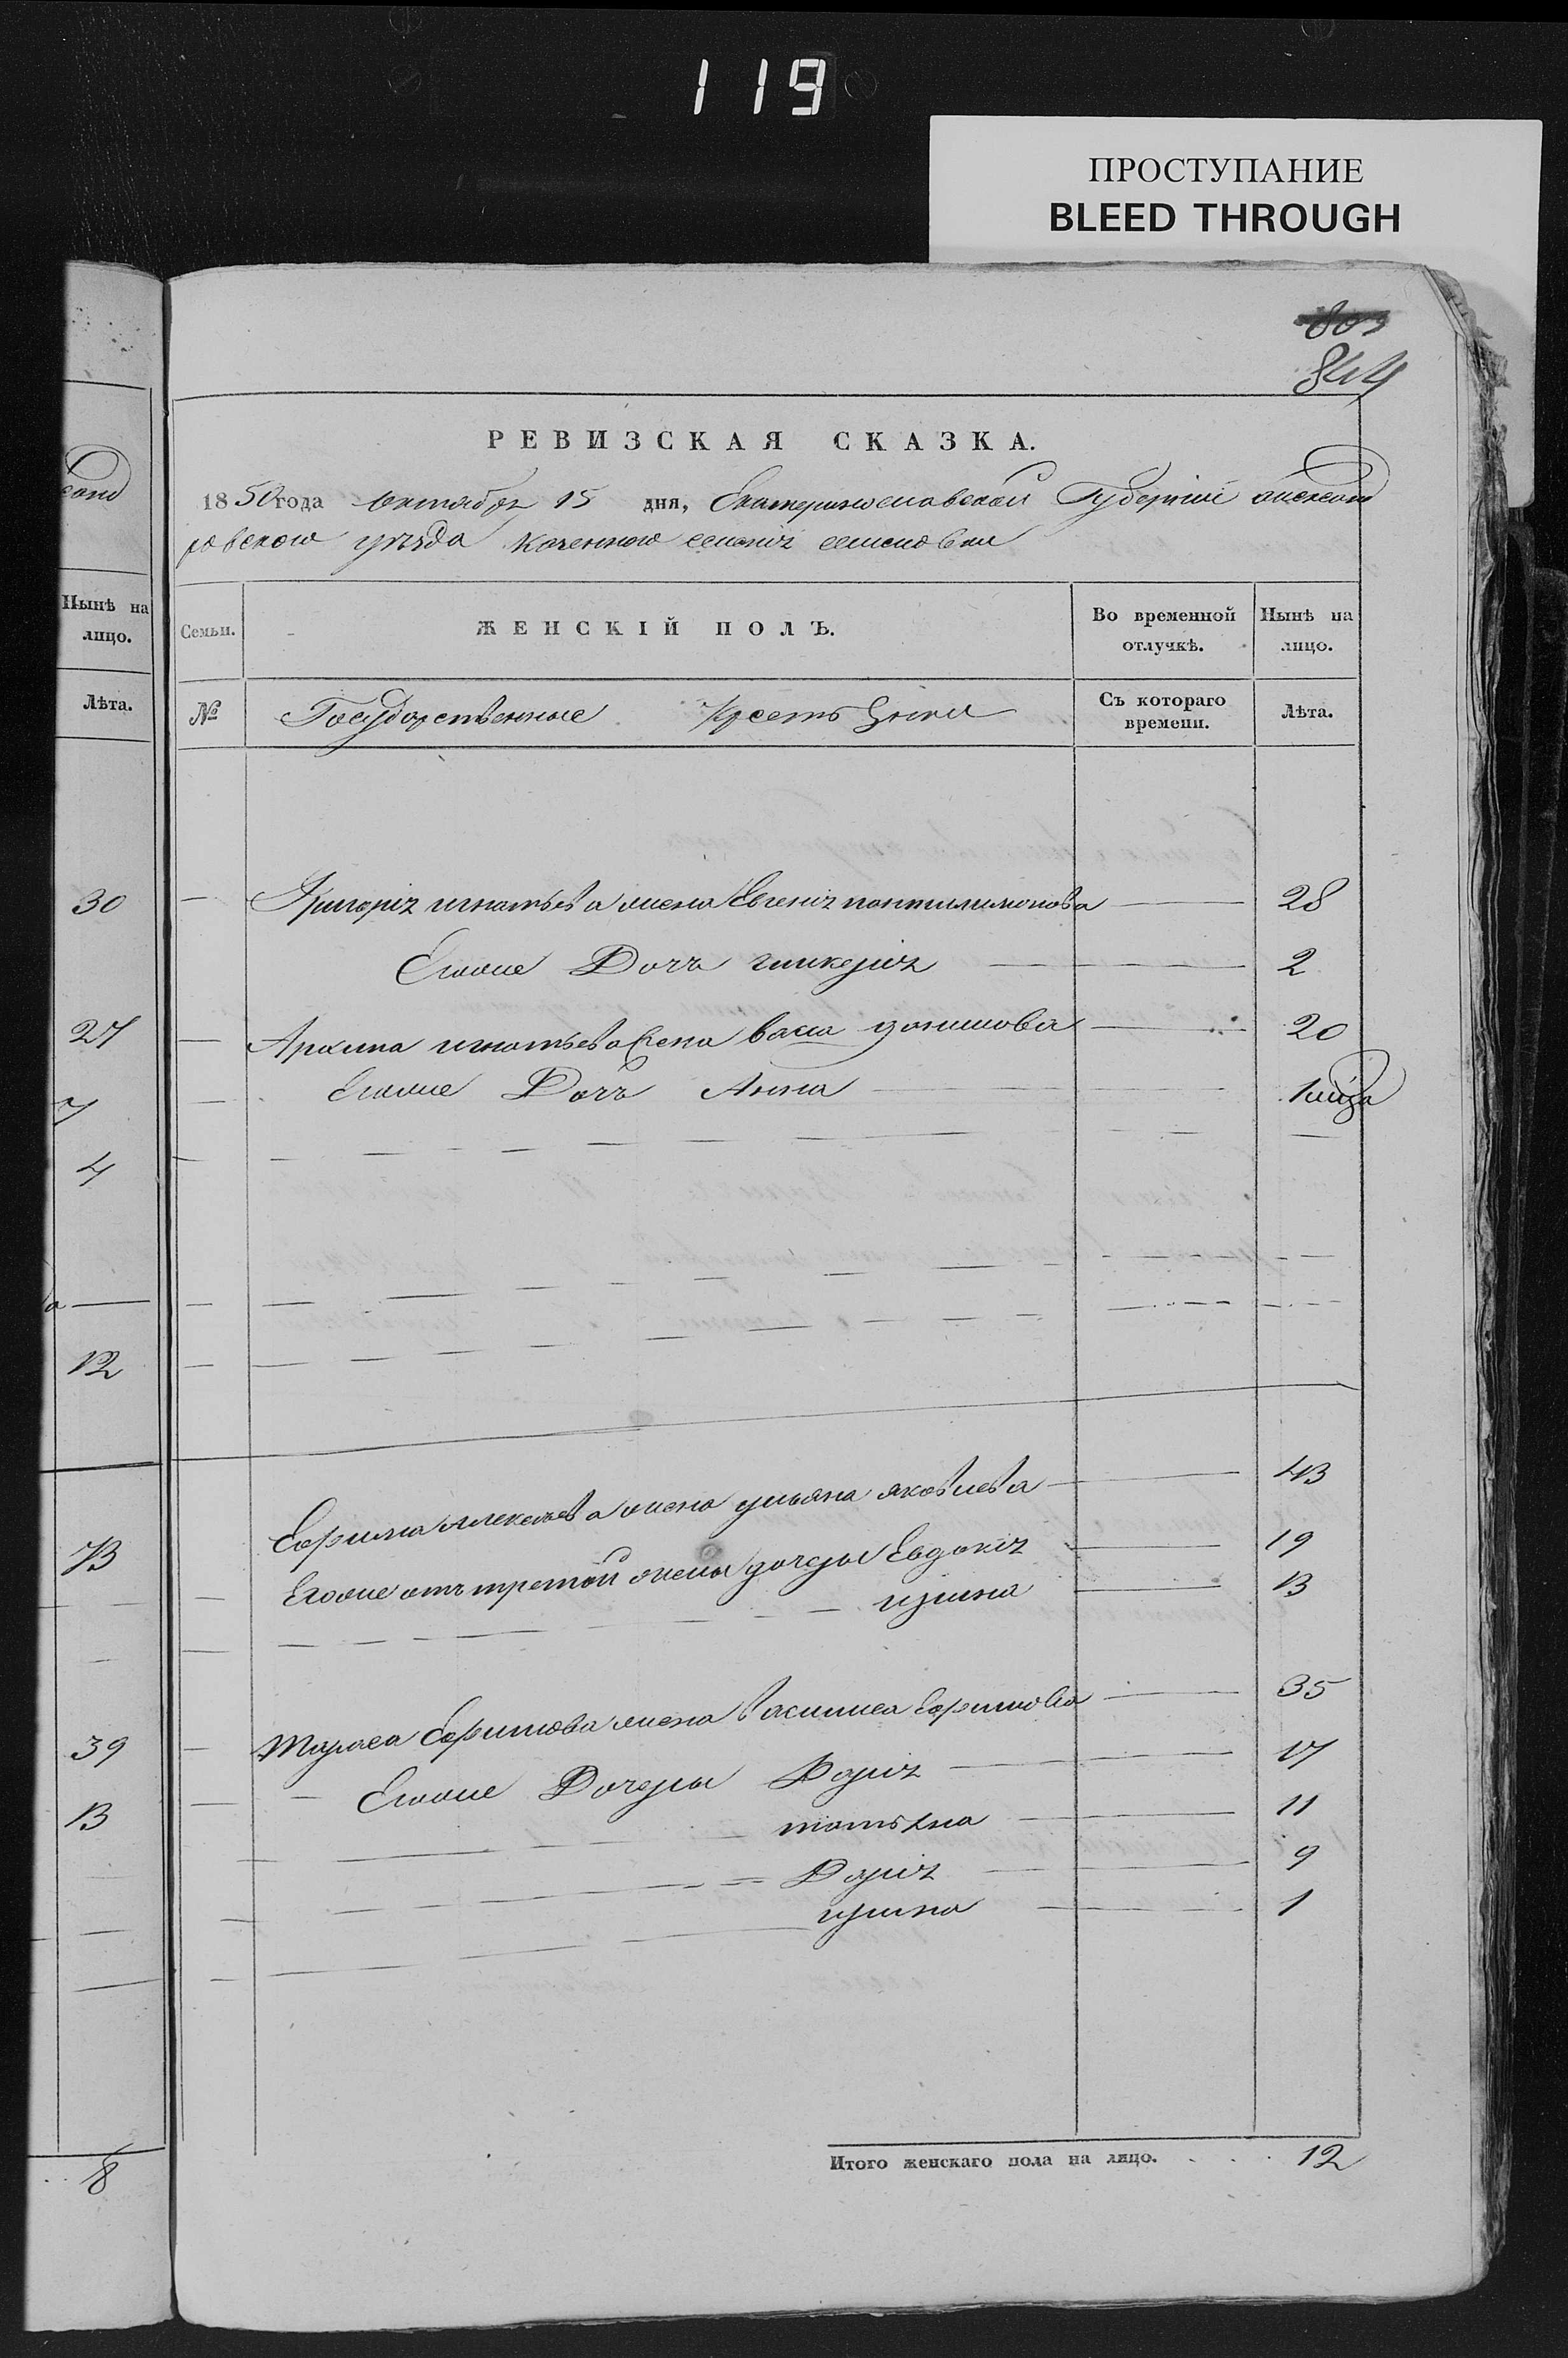 119
ПРОСТУПАНИЕ
BLEED THROUGH
803
844
РЕВИЗСКАЯ СКАЗКА.
1850 года октября 15 дня, Екатеринославской Губернии Александ
ровского уезда казенного селения
Нынѣ на лицо.
Лѣта.
Семьи.
ЖЕНСКІЙ ПОЛЪ.
Во временной отлучкѣ.
Нынѣ на лицо.
№
Государственные Крестьяне
Съ котораго времени.
Лѣта.
30
Григория игнатьева жена Евгения пантилимонова 28
Егоже Дочь гликерия 2
27
игнатьева жена данилова 20
7
Егоже Дочь Анна
4
12
Ефима Алексеева жена ульяна яковлева 43
13
Егоже отъ третой жены дочеры Евдокия 19
ирина 13
Тараса Ефимова жена василиса Ефимова 35
39
Егоже Дочеры Дария 17
13
татьяна 11
Дария 9
ирина 1
8
Итого женскаго пола на лицо. 12